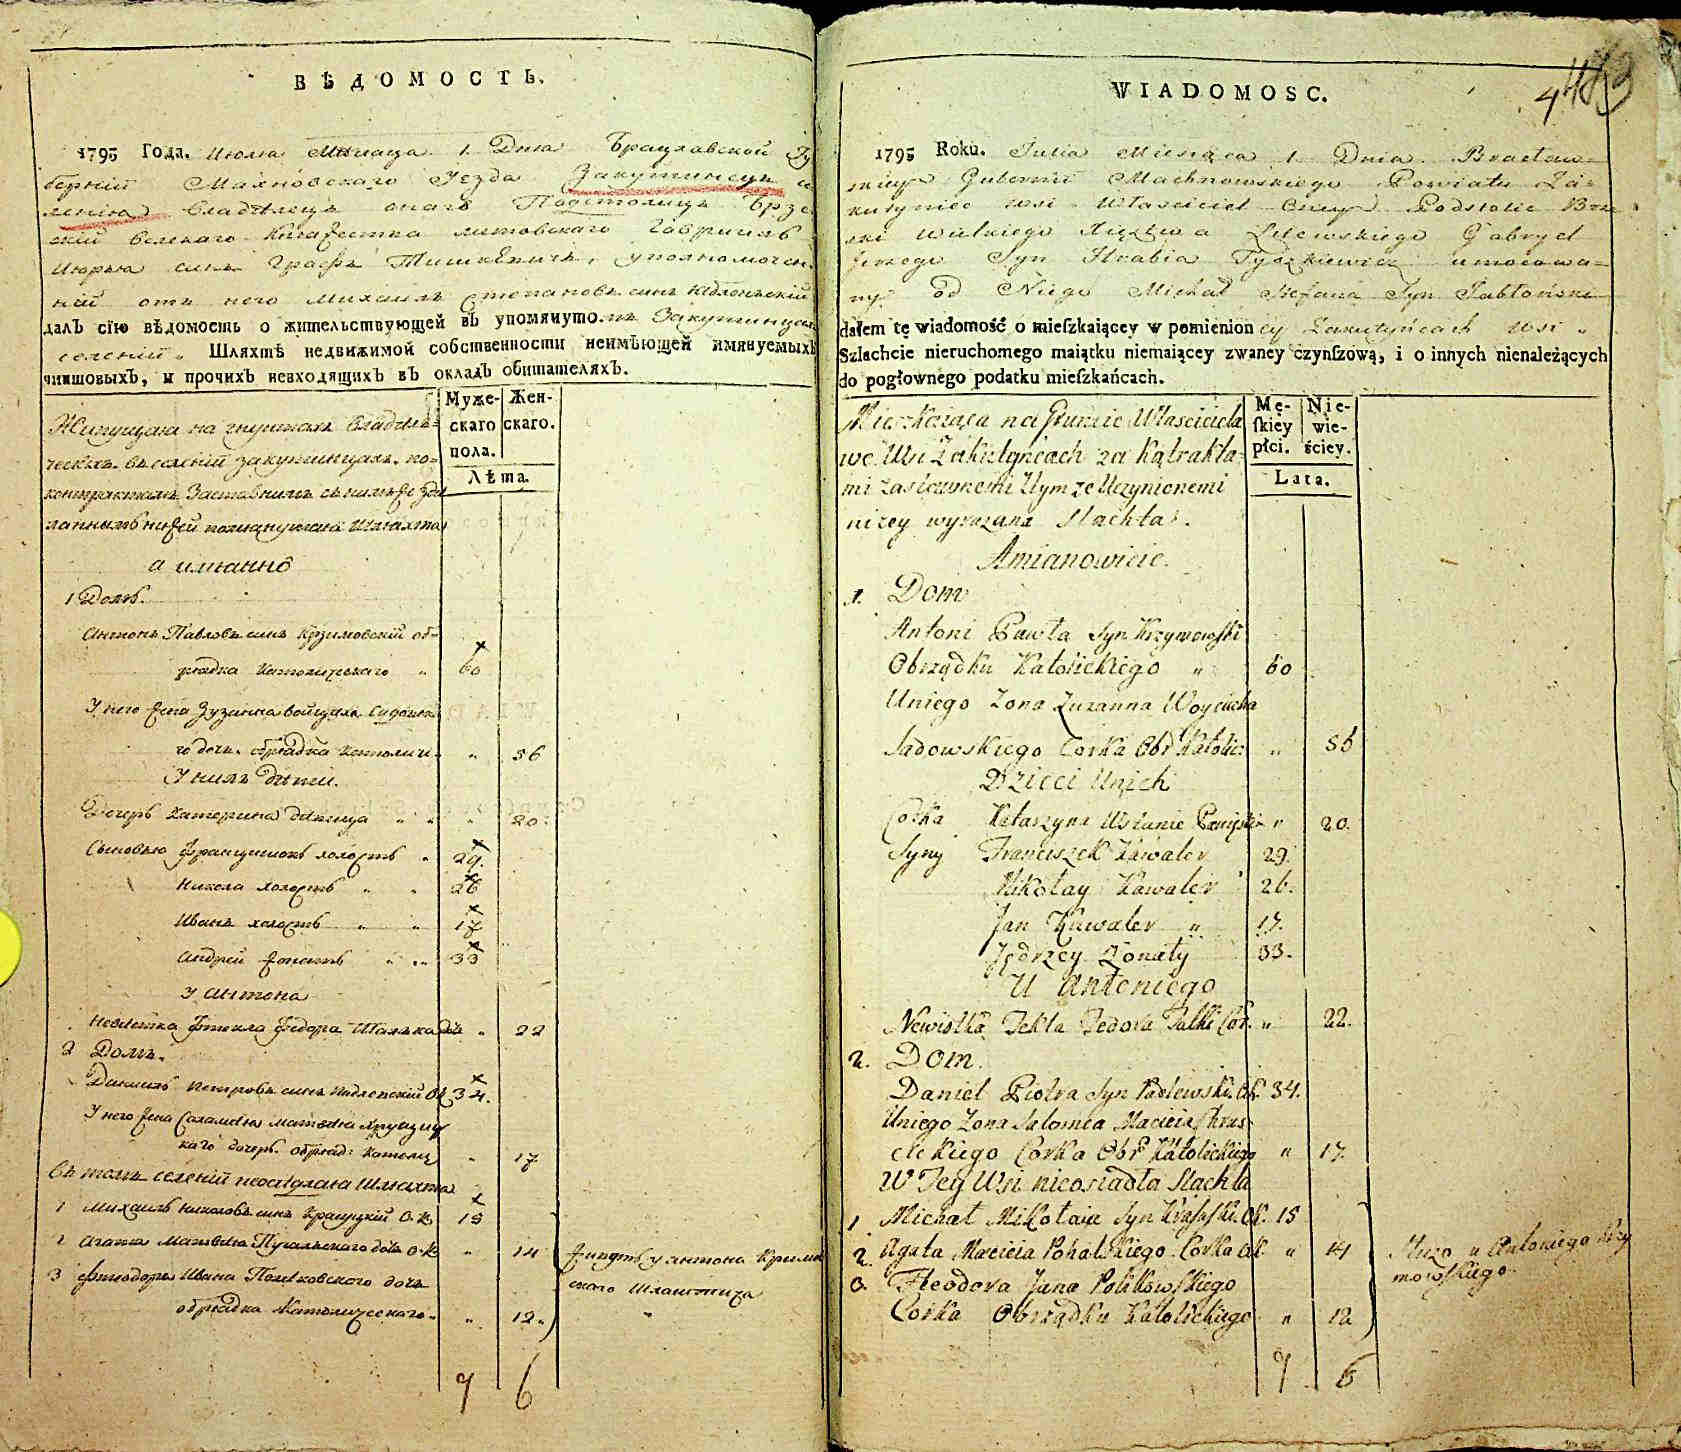 ВѢДОМОСТЬ.
1795 Года. Июлиа Мѣсяца 1 Дня Брацлавской Гу
берніи Махновскаго Уезда Закутинецъ се
ленія владѣлецъ онаго Подстолицъ Брже
скій великаго Княжества литовскаго Гавриилъ
Июрья синъ Графъ Тишкѣвичъ, уполномочен
ній отъ него Михаилъ Степановъ синъ Яблонскій
далЪ сїю вѣдомость о жительствующей вЪ упомянуто.мъ Закутинцахъ
селеніи. Шляхтѣ недвижимой собственности неимѣющей имянуемыхЪ
чиншовыхЪ, и прочихЪ невходящихЪ вЪ окладЪ обитателяхЪ.
Муже-скаго пола.
Жен-скаго.
Лѣта.
Живущая на грунтахъ владѣль-
ческихъ въ селеніи закутинцахъ по-
контрактамъ
нижей Шляхта
а имянно
1 Домъ.
Антонъ Павловъ синъ Кржимовскій об-
рядка Католическаго „ 60
У него жена Зузанна войцеха Садовска
го дочь обрядка Католич: „ 56
У нихъ дѣти.
Дочерь Катерина дѣвица „ „ 20.
Сыновья Францишокъ холостъ „ 29.
Никола холостъ „ „ 26
Иванъ холостъ „ „ 17
Андрей женатъ „ „ 33
У Антона
Невѣстка Фтекла Федора Шалька доч „ 22
2 Домъ.
Даниилъ Петровъ синъ Падлевскій ОК 34.
У него жена Саламѣя Матвѣя Хрусциц
каго дочерь обряд: Католиц „ 17
Въ томъ селеніи неосѣдлая Шляхта
1 Михаилъ Николовъ синъ Красуцкій О.К. 15
2 Агата Матвѣя Пугальскаго доч О.К. „ 14
3 Фтиодора Ивана Полѣковского дочь
обрядка Католическаго. „ 12.
живутъ у антона Кржимо
ского Шляхтича
9 6
WIADOMOSC.
4
1795 Roku. Iulia Miesiąca 1 Dnia Bracław-
skiey Gubernii Machnowskiego Powiatu Za-
kutyniec wsi Własciciel Oney Podstolic Brze
ski Wielkiego Xięztwa Litewskiego Gabryel
Jerzego Syn Hrabia Tyszkiewicz umocowa-
ny od Niego Michał Stefana Syn Jabłoński
dałem tę wiadomość o mieſzkaiącey w pomienioncy Zakutyńcach wsi „
Szlachcie nieruchomego maiątku niemaiącey zwaney czynſzową, i o innych nienależących
do pogłownego podatku mieſzkańcach.
Mę-ſkiey płci.
Nie-wie-ściey.
Lata.
Mieszkaiąca na Gruncie Własciciela
we Wsi Zakutyńcach za Kątrakta-
mi Zastawnemi Uczynionemi
nizey wyrazana Slachta.
Amianowicie
1. Dom
Antoni Pawła Syn Krzymowſki
Obrządku Katolickiego „ 60
Uniego Zona Zuzanna Woyciecha
Sadowskiego Corka Obr Katolic: „ 56
Dzieci Unich
Corka Katarzyna Wstanie Panieńskim „ 20.
Syny Franciszek Kawaler 29.
Nikołay Kawaler 26.
Jan Kawaler „ 17.
Jędrzey Zonaty 33.
U Antoniego
Newiostka Tekla Fedora Salki Cor. „ 22.
2. Dom
Daniel Piotra Syn Padlewski OK. 34.
Uniego Zona Salomea Macieia Chrus-
cickiego Corka Obr Katolickiego „ 17.
W Tey Wsi nieosiadła Slachta
1. Michał Mikołaia Syn Krasuſki OK. 15
2. Agata Macieia Pohalſkiego Corka OK. „ 14
3. Fteodora Jana Polikowſkiego
Corka Obrządku Katolickiego „ 12
Służo u Antoniego Krzy
mowſkiego
9 6